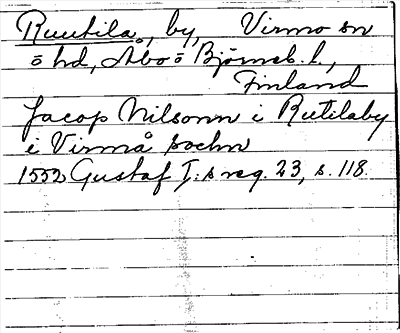 Ruutila, by, Virmo sn
o hd, Åbo o Björneb. l.,
Finland
Jacop Nilsonn i Rutilaby
i Virmå sochn
1552 Gustaf I:s reg. 23, s. 118.